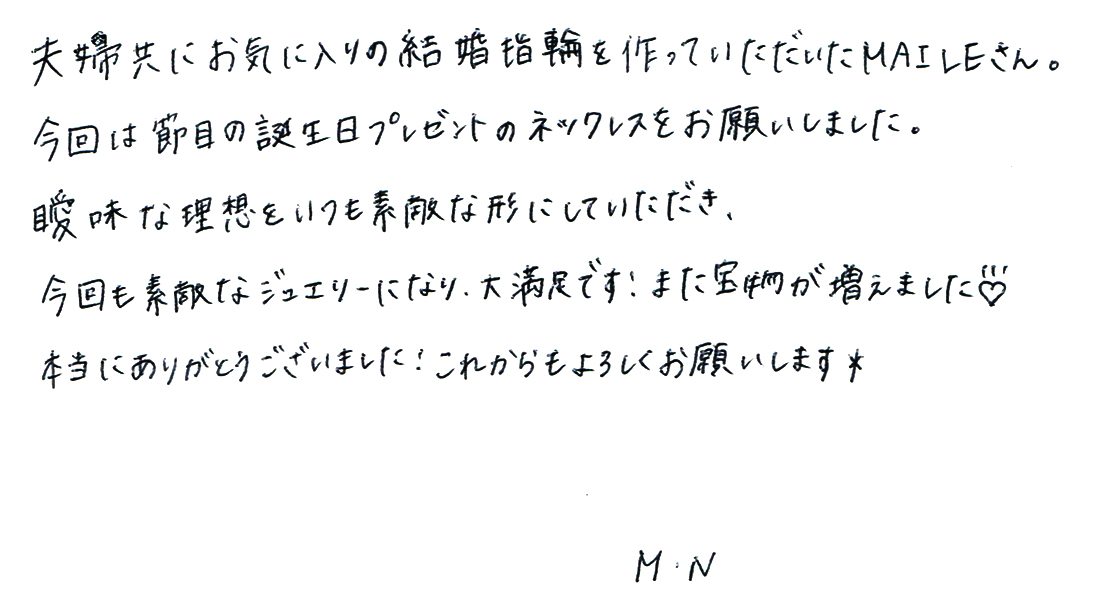 夫婦共にお気に入りの結婚指輪を作っていただいたMAILEさん。
今回は節目の誕生日プレゼントのネックレスをお願いしました。
曖味な理想をいつも素敵な形にしていただき、
今回も素敵なジュエリーになり、大満足です!また宝物が増えました♡
本当にありがとうございました!これからもよろしくお願いします*
M・N